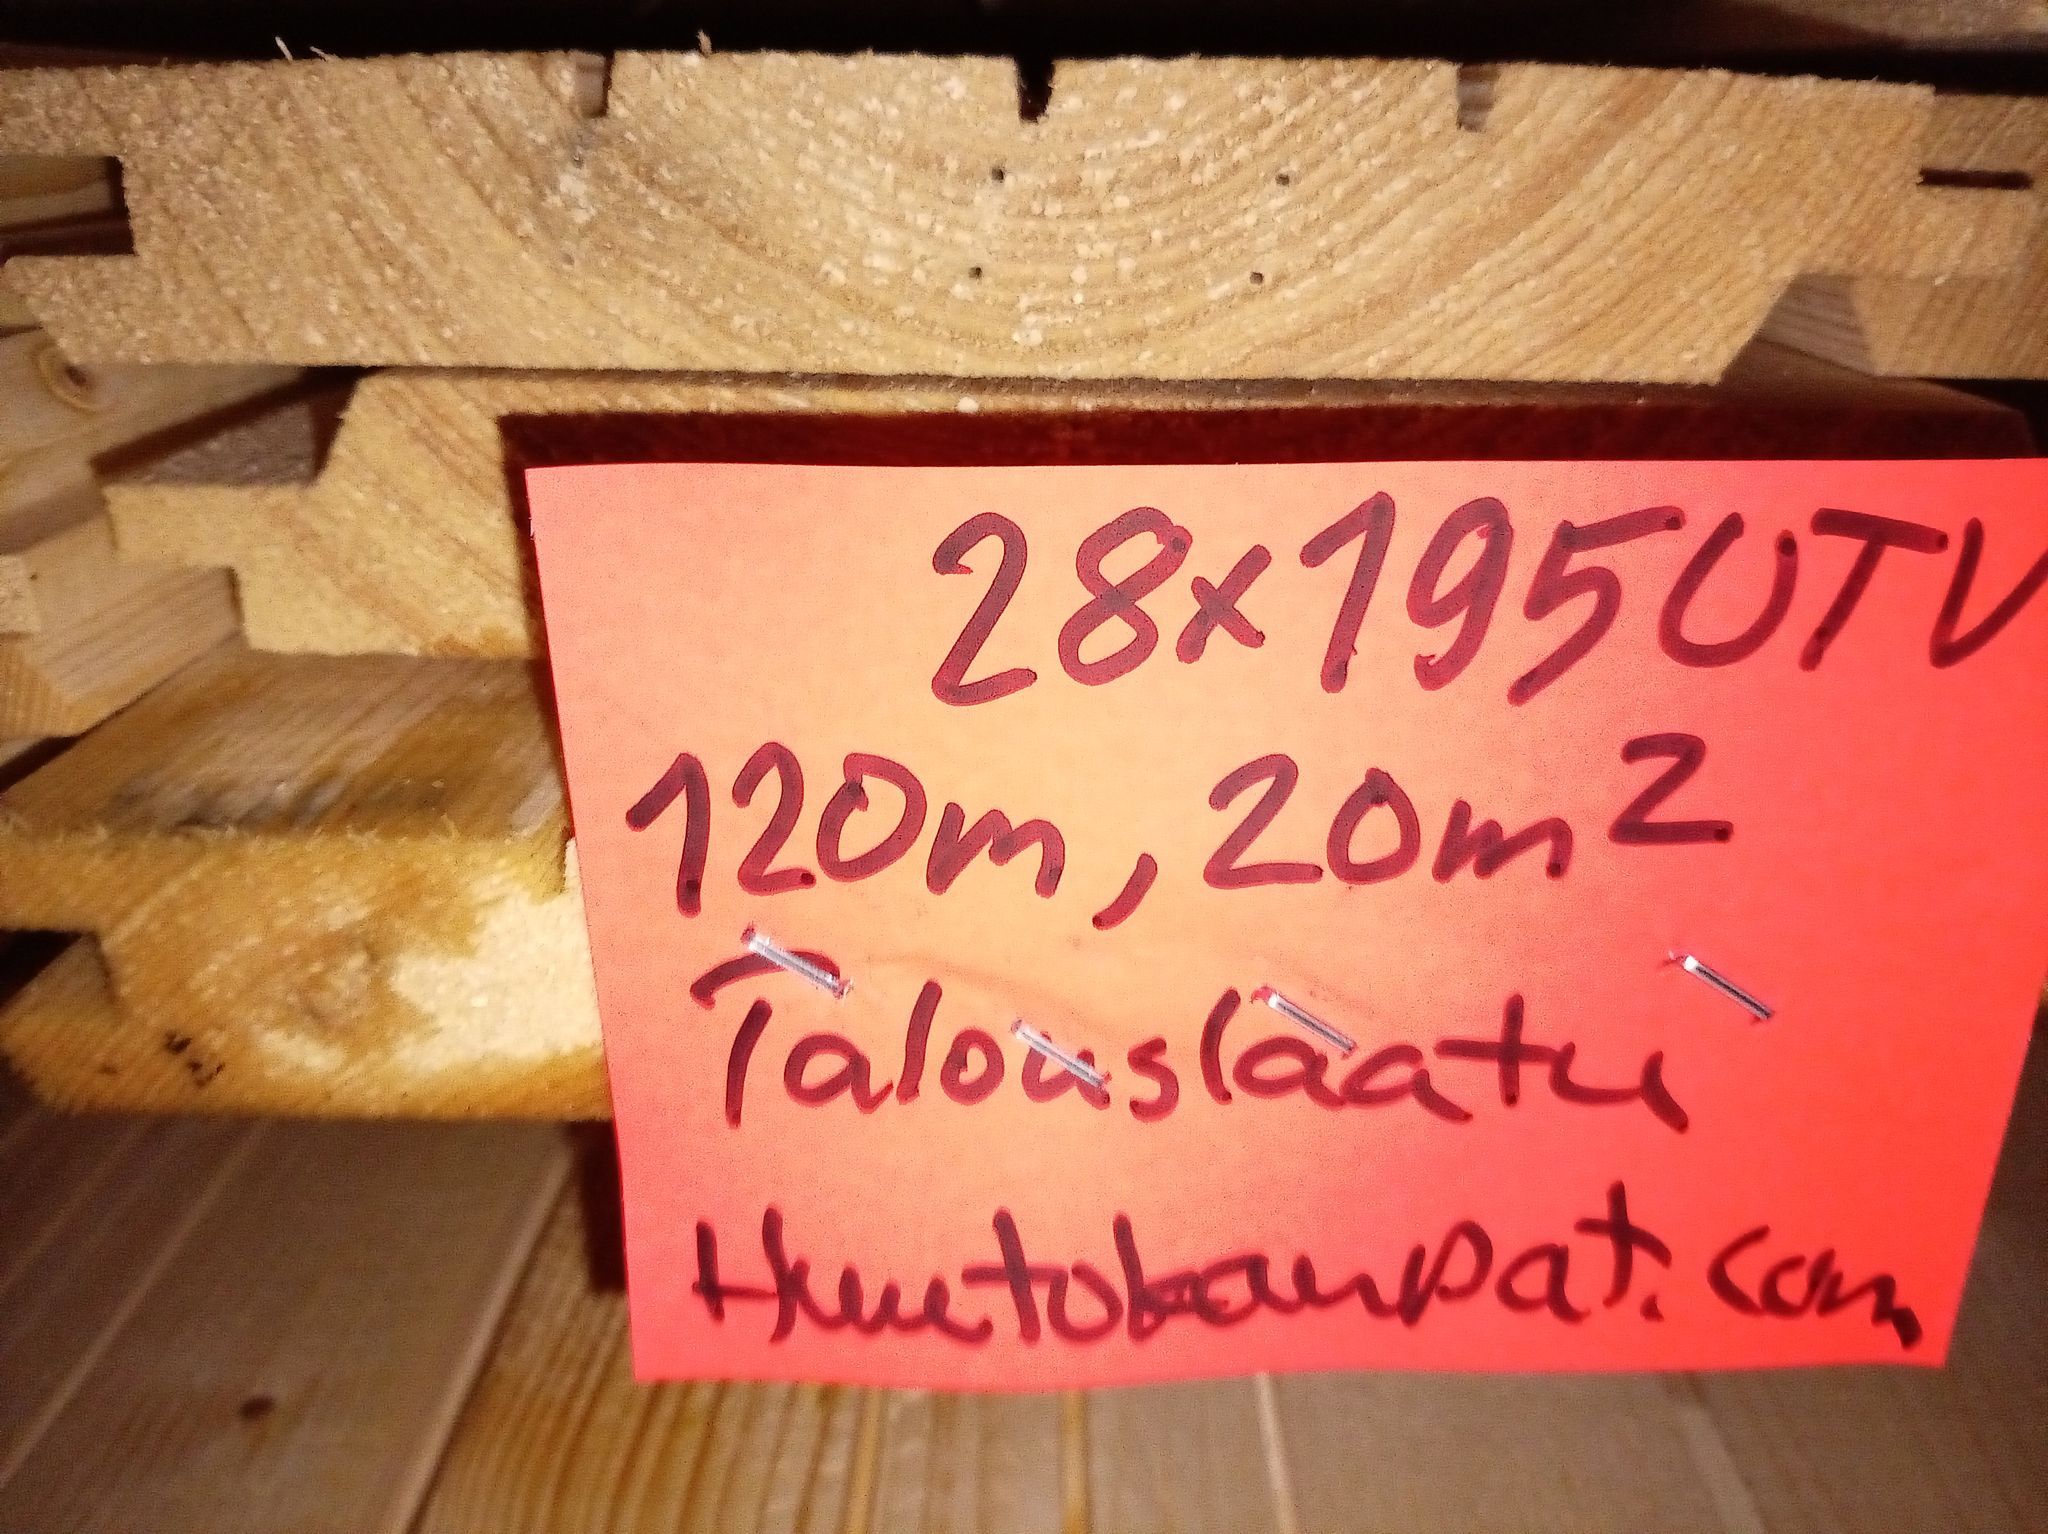 28x195UTV
120m, 20m²
Talouslaatu
Huutokaupat.com